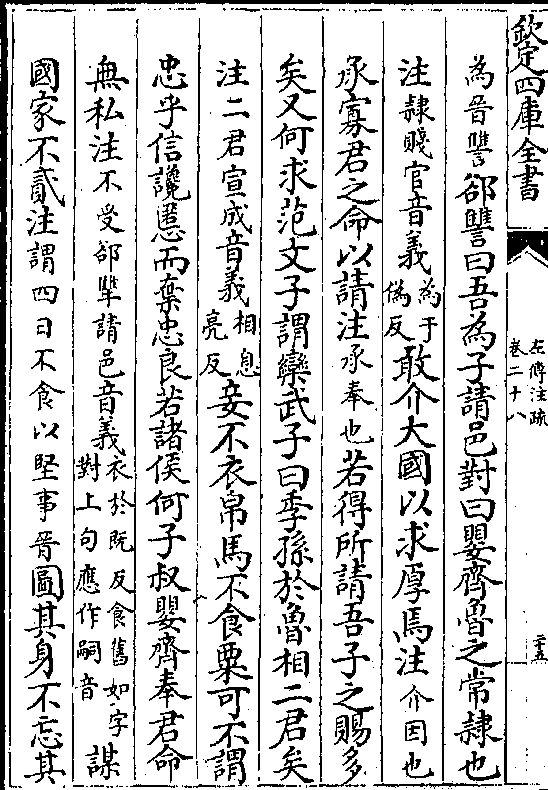 欽定四庫全書
左傳注疏
卷二十八
二十五
為晉讐郤犨曰吾為子請邑對曰嬰齊魯之常隸也
注隸賤官音義為于偽反敢介大國以求厚焉注介因也
承寡君之命以請注承奉也若得所請吾子之賜多
矣又何求范文子謂欒武子曰季孫於魯相二君矣
注二君宣成音義相息亮反妾不衣帛馬不食粟可不謂
忠乎信讒慝而棄忠良若諸侯何子叔嬰齊奉君命
無私注不受郤犨請邑音義衣於既反食舊如字對上句應作嗣音謀
國家不貳注謂四日不食以堅事晉圖其身不忘其